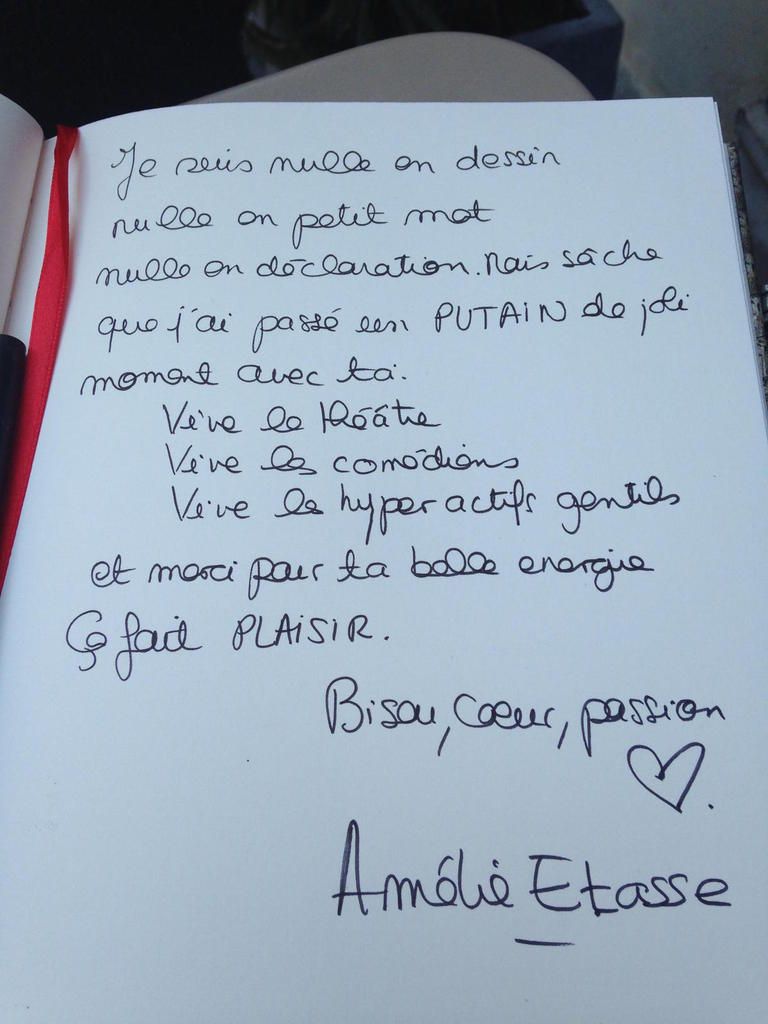 Je suis nulle en dessin
nulle en petit mot
nulle en déclaration. Mais sâche
que j'ai passé un PUTAIN de joli
moment avec toi.
Vive le théâtre
Vive les comédiens
Vive les hyper actifs gentils
et merci pour ta belle energie
Ça fait PLAISIR.
Bisou, Cœur, passion
♡.
Amélie Etasse